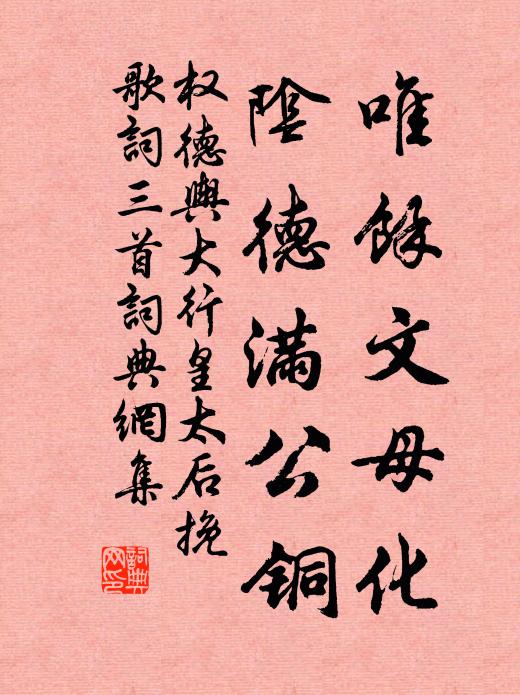 唯餘文母化
陰德滿公铜
权德輿大行皇太后挽
歌詞三首詞典網集
詞典
网印